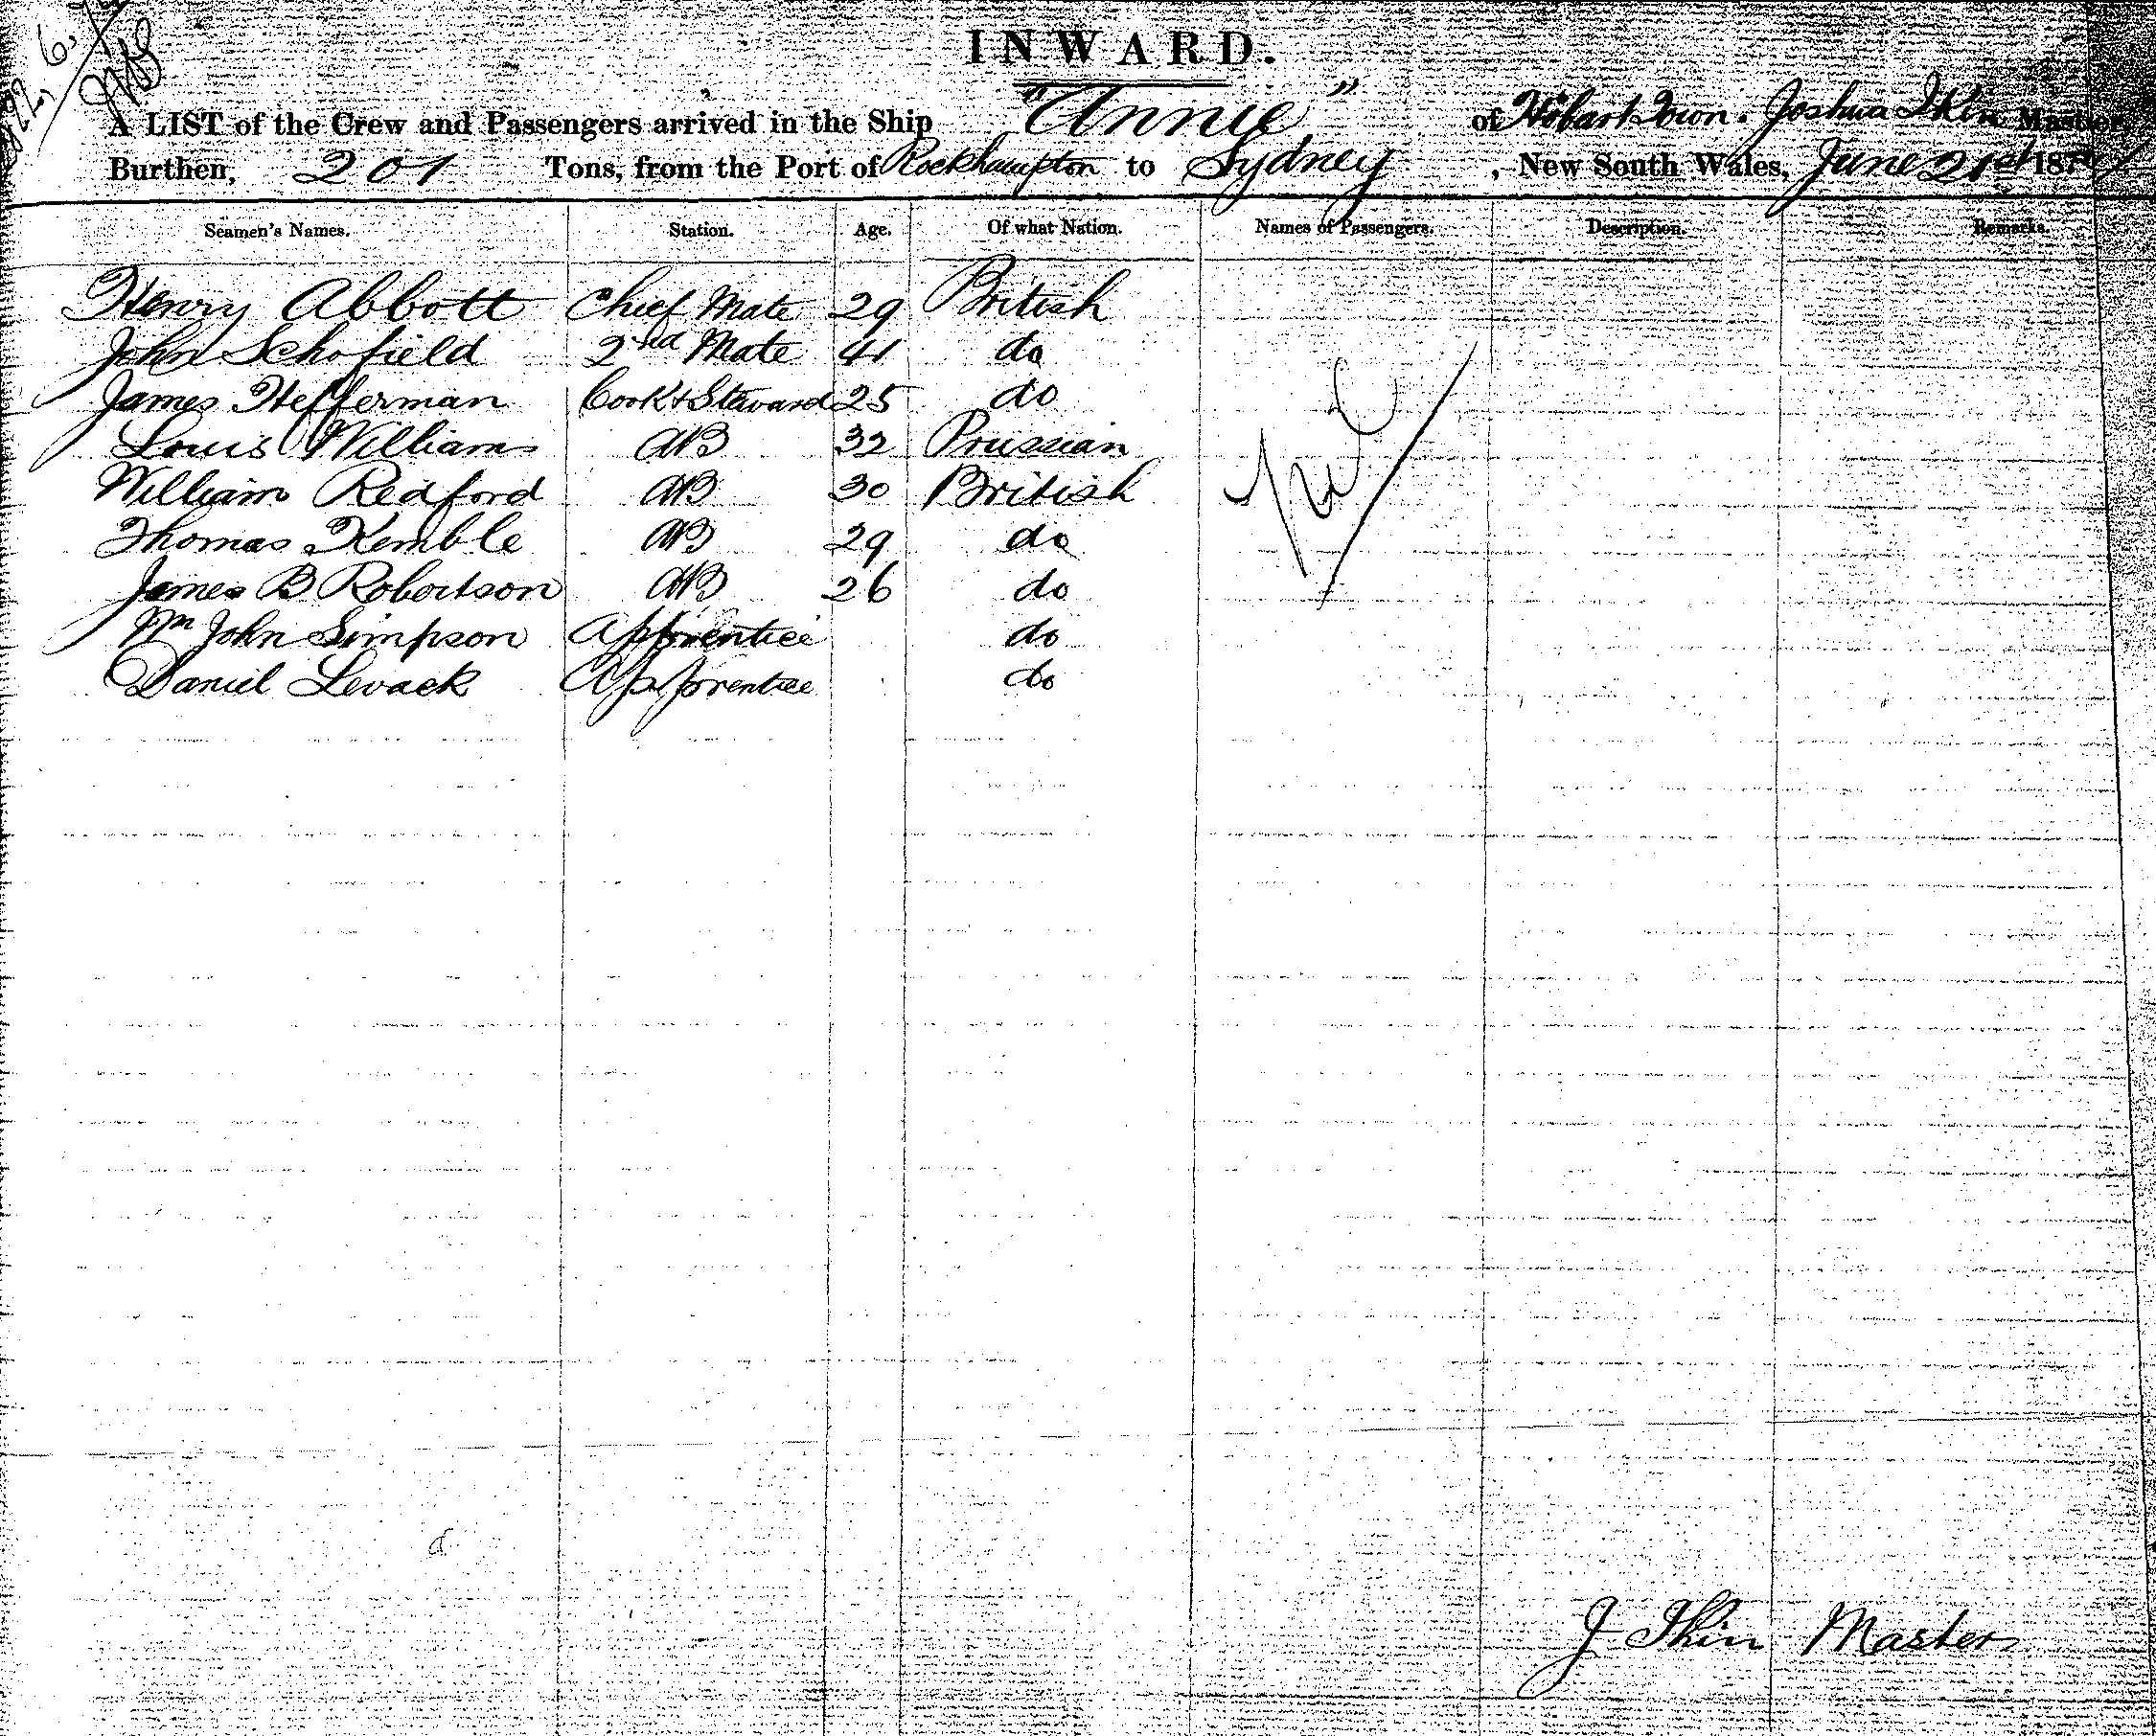 INWARD.
A LIST of the Crew and Passengers arrived in the Ship "Annie" of Hobart Town. Joshua Ikin Master,
Burthen, 201 Tons, from the Port of Rockhampton to Sydney, New South Wales, June 21st 187
Seamen's Names. Station. Age. Of what Nation. Names of Passengers. Description. Remarks.
Henry Abbott Chief Mate 29 British
John Schofield 2nd Mate 41 do
James Hefferman Cook & Steward 25 do
Louis Williams AB 32 Prussian
William Redford AB 30 British
Thomas Kemble AB 29 do
James B Robertson AB 26 do
Wm John Simpson Apprentice do
Daniel Levack Apprentice do
Nil
J Ikin Master